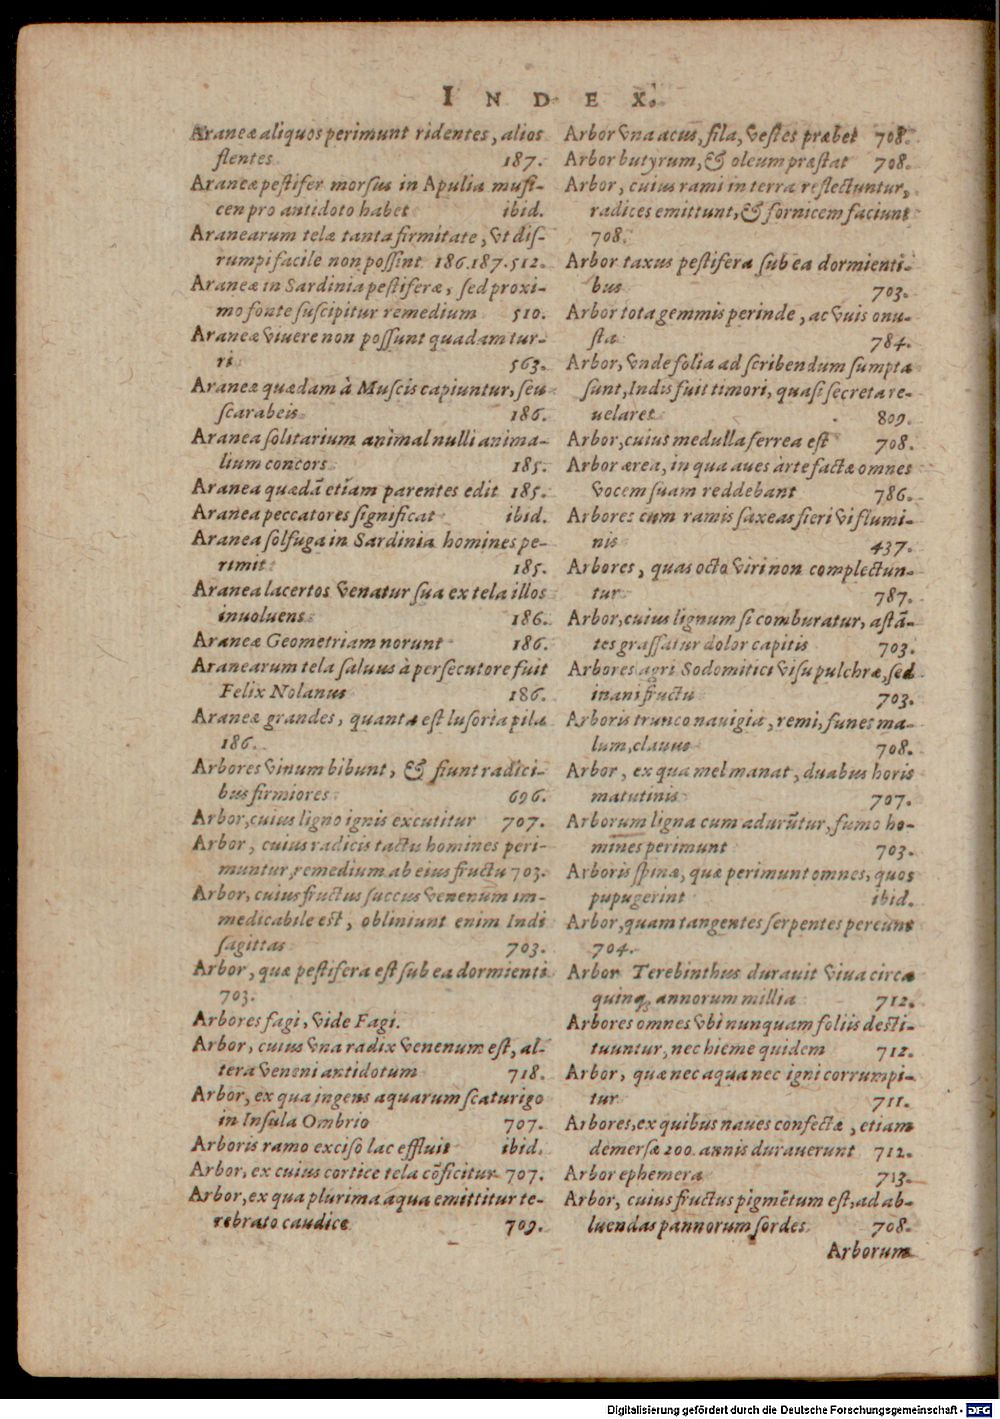 INDEX.
Araneæ aliquos perimunt ridentes, alios
flentes 187.
Araneæ pestifer morsus in Apulia musi-
cen pro antidoto habet ibid.
Aranearum telæ tanta firmitate, vt dis-
rumpi facile non possint 186.187.512.
Araneæ in Sardinia pestiferæ, sed proxi-
mo fonte suscipitur remedium 510.
Araneæ viuere non possunt quadam tur-
ri 563.
Araneæ quædam à Muscis capiuntur, seu
scarabeis 186.
Aranea solitarium animal nulli anima-
lium concors 185.
Aranea quædã etiam parentes edit 185.
Aranea peccatores significat ibid.
Aranea solfuga in Sardinia homines pe-
rimit 185.
Aranea lacertos venatur sua ex tela illos
inuoluens 186.
Araneæ Geometriam norunt 186.
Aranearum tela saluus à persecutore fuit
Felix Nolanus 186.
Araneæ grandes, quanta est lusoria pila
186.
Arbores vinum bibunt, & fiunt radici-
bus firmiores 696.
Arbor, cuius ligno ignis excutitur 707.
Arbor, cuius radicis tactu homines peri-
muntur, remedium ab eius fructu 703.
Arbor, cuius fructus succus venenum im-
medicabile est, obliniunt enim Indi
sagittas 703.
Arbor, quæ pestifera est sub ea dormienti
703.
Arbores fagi, vide Fagi.
Arbor, cuius vna radix venenum est, al-
tera veneni antidotum 718.
Arbor, ex qua ingens aquarum scaturigo
in Insula Ombrio 707.
Arboris ramo exciso lac effluit ibid.
Arbor, ex cuius cortice tela cõficitur 707.
Arbor, ex qua plurima aqua emittitur te-
rebrato caudice 709.
Arbor vna acus, fila, vestes præbet 708.
Arbor butyrum, & oleum præstat 708.
Arbor, cuius rami in terra reflectuntur,
radices emittunt, & fornicem faciunt
708.
Arbor taxus pestifera sub ea dormienti-
bus 703.
Arbor tota gemmis perinde, ac vuis onu-
sta 784.
Arbor, vnde folia ad scribendum sumpta
sunt, Indis fuit timori, quasi secreta re-
uelaret 809.
Arbor, cuius medulla ferrea est 708.
Arbor ærea, in qua aues arte factæ omnes
vocem suam reddebant 786.
Arbores cum ramis saxeas fieri vi flumi-
nis 437.
Arbores, quas octo viri non complectun-
tur 787.
Arbor, cuius lignum si comburatur, astã-
tes grassatur dolor capitis 703.
Arbores agri Sodomitici visu pulchræ, sed
inani fructu 703.
Arboris trunco nauigia, remi, funes ma-
lum, clauus 708.
Arbor, ex qua mel manat, duabus horis
matutinis 707.
Arborum ligna cum adurũtur, fumo ho-
mines perimunt 703.
Arboris spinæ, quæ perimunt omnes, quos
pupugerint ibid.
Arbor, quam tangentes serpentes pereunt
704.
Arbor Terebinthus durauit viua circa
quinq; annorum millia 712.
Arbores omnes vbi nunquam foliis desti-
tuuntur, nec hieme quidem 712.
Arbor, quæ nec aqua nec igni corrumpi-
tur 711.
Arbores, ex quibus naues confectæ, etiam
demersæ 200. annis durauerunt 712.
Arbor ephemera 713.
Arbor, cuius fructus pigmẽtum est, ad ab-
luendas pannorum sordes 708.
Arborum
Digitalisierung gefördert durch die Deutsche Forschungsgemeinschaft - DFG